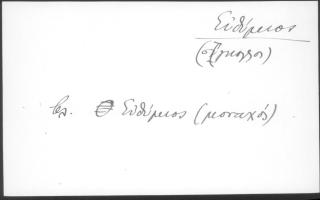 Εὐθύμιος
βλ. Εὐθύμιος (μοναχός)